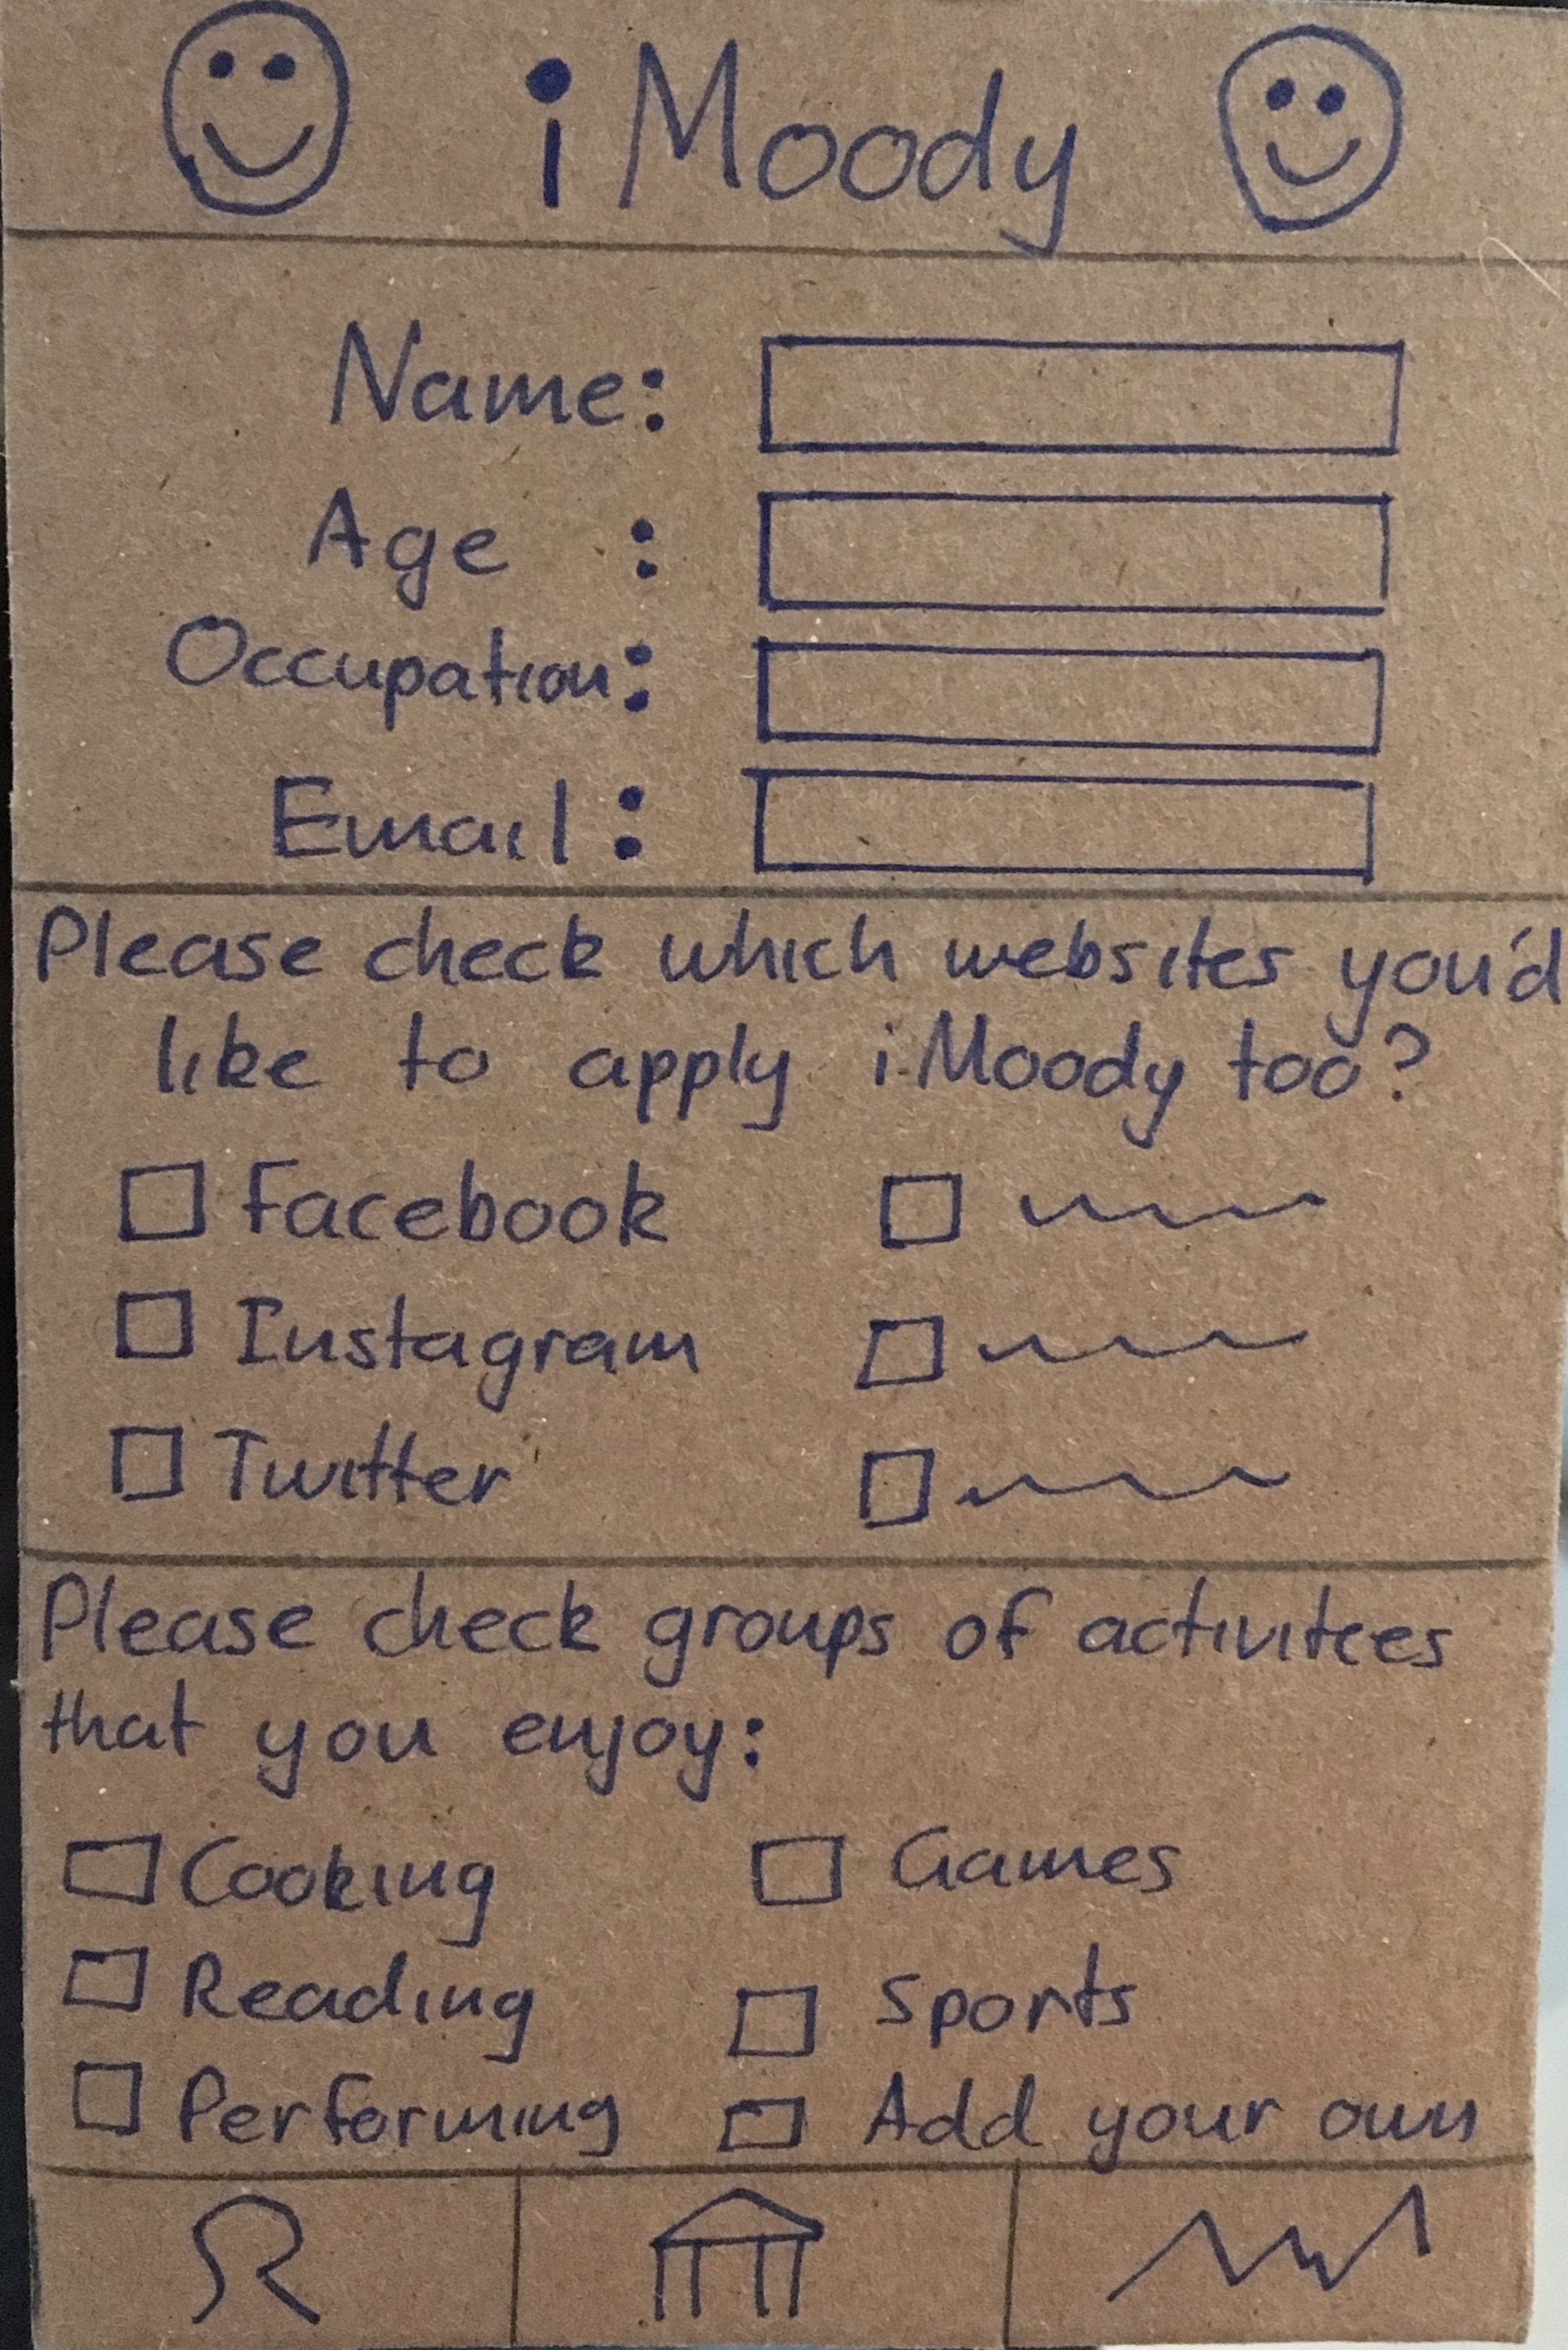 iMoody
Name:
Age :
Occupation:
Email:
Please check which websites you'd
like to apply iMoody too?
Facebook
Instagram
Twitter
Please check groups of activitees
that you enjoy:
Cooking Games
Reading Sports
Performing Add your own